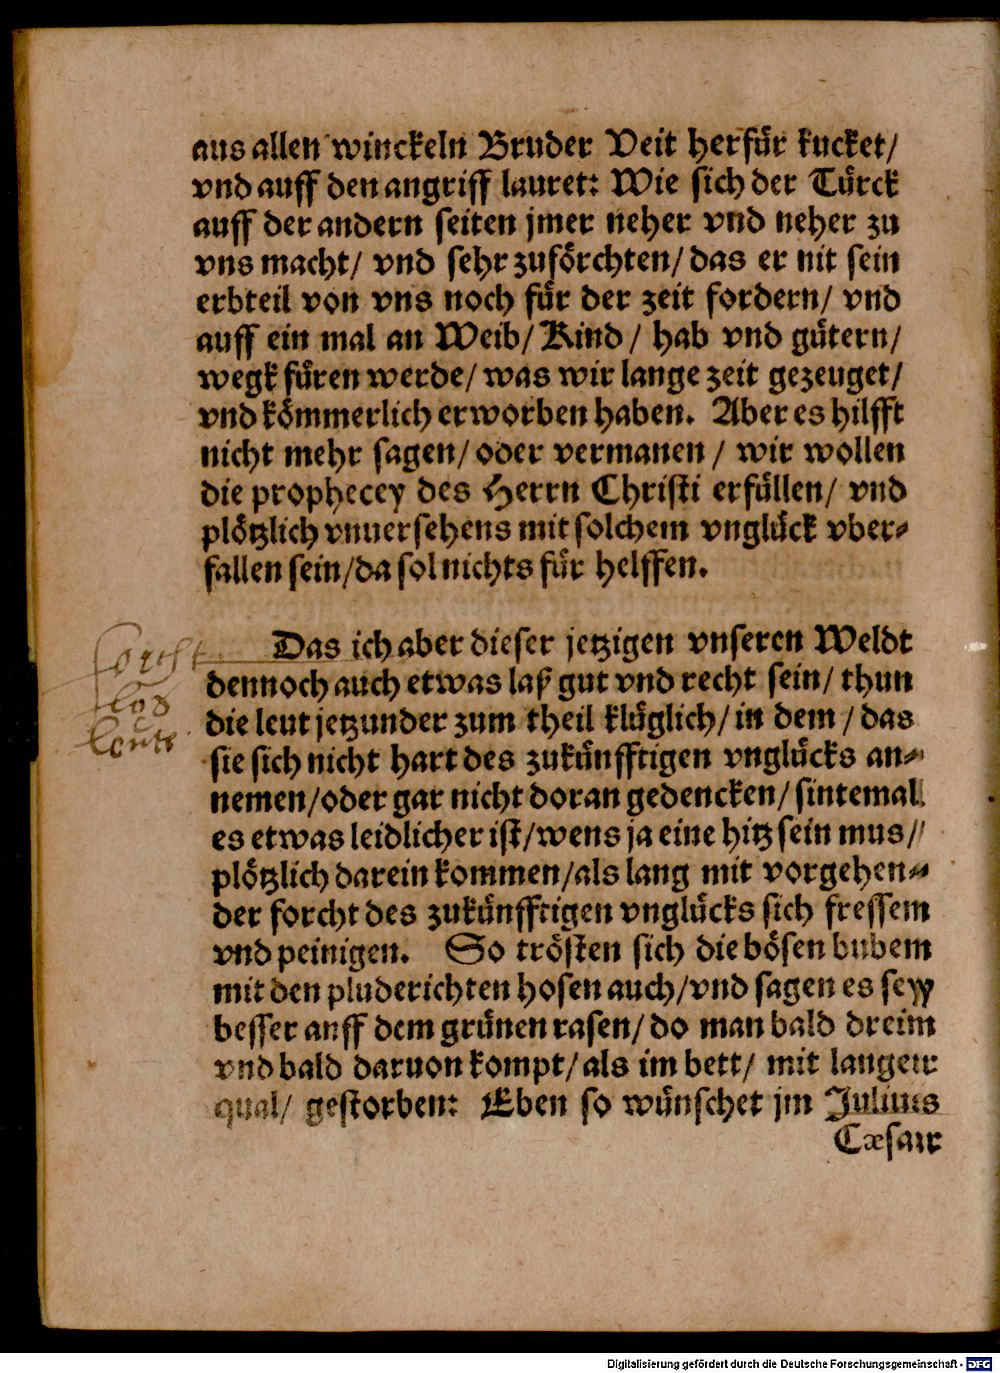 aus allen winckeln Bruder Veit herfür kucket/
vnd auff den angriff lauret: Wie sich der Türck
auff der andern seiten jmer neher vnd neher zu
vns macht/ vnd sehr zuförchten/ das er nit sein
erbteil von vns noch für der zeit fordern/ vnd
auff ein mal an Weib/ Kind/ hab vnd gütern/
wegk füren werde/ was wir lange zeit gezeuget/
vnd kömmerlich erworben haben. Aber es hilfft
nicht mehr sagen/ oder vermanen/ wir wollen
die prophecey des Herrn Christi erfüllen/ vnd
plötzlich vnuersehens mit solchem vnglück vber-
fallen sein/ da sol nichts für helffen.
Das ich aber dieser jetzigen vnseren Weldt
dennoch auch etwas laß gut vnd recht sein/ thun
die leut jetzunder zum theil klüglich/ in dem/ das
sie sich nicht hart des zukünfftigen vnglücks an-
nemen/ oder gar nicht doran gedencken/ sintemal
es etwas leidlicher ist/ wens ja eine hitz sein mus/
plötzlich darein kommen/ als lang mit vorgehen-
der forcht des zukünfftigen vnglücks sich fressem
vnd peinigen. So trösten sich die bösen bubem
mit den pluderichten hosen auch/ vnd sagen es sey
besser auff dem grünen rasen/ do man bald dreim
vnd bald daruon kompt/ als im bett/ mit langer
qual/ gestorben: Eben so wünschet jm Julius
Cæsar
forcht
los
leute
Digitalisierung gefördert durch die Deutsche Forschungsgemeinschaft - DFG